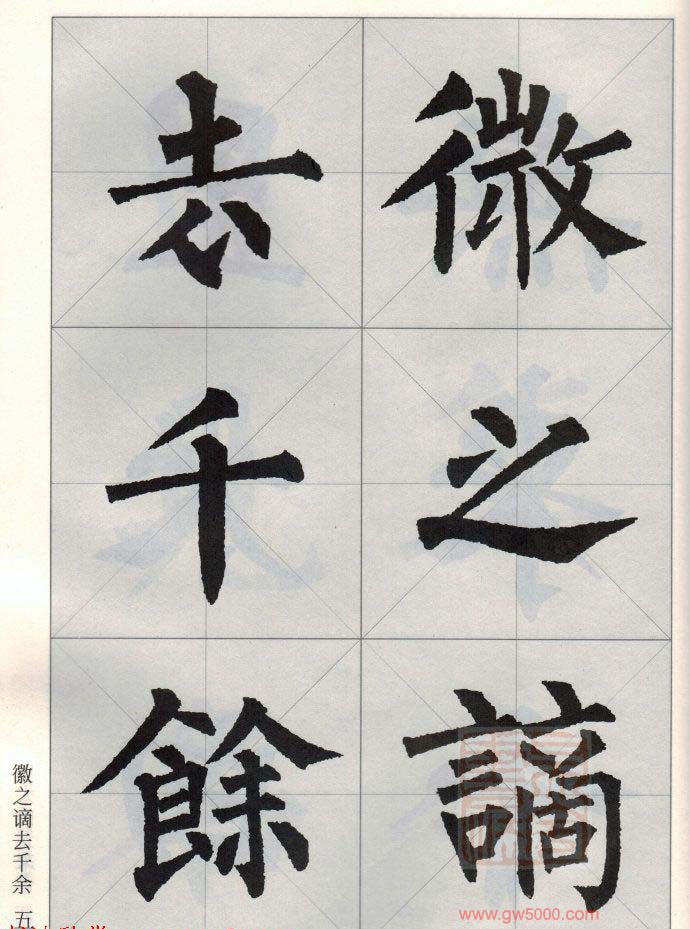 微之謫
去千餘
徽之谪去千余 五
www.gw5000.com